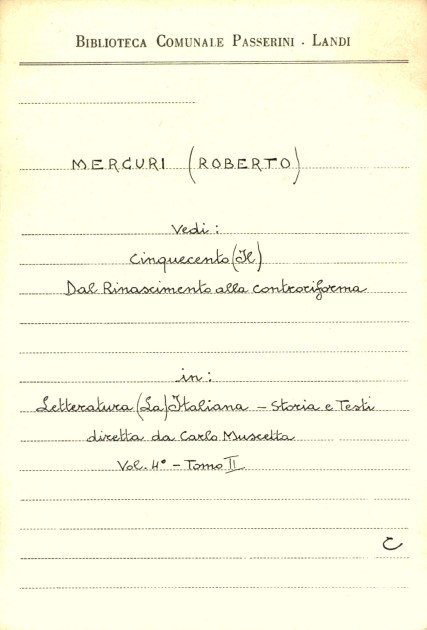 BIBLIOTECA COMUNALE PASSERINI - LANDI
MERCURI (ROBERTO)
Vedi:
Cinquecento (Il)
Dal Rinascimento alla controriforma
in:
Letteratura (La) Italiana - Storia e Testi
diretta da Carlo Muscetta
Vol. 4° - Tomo II
C